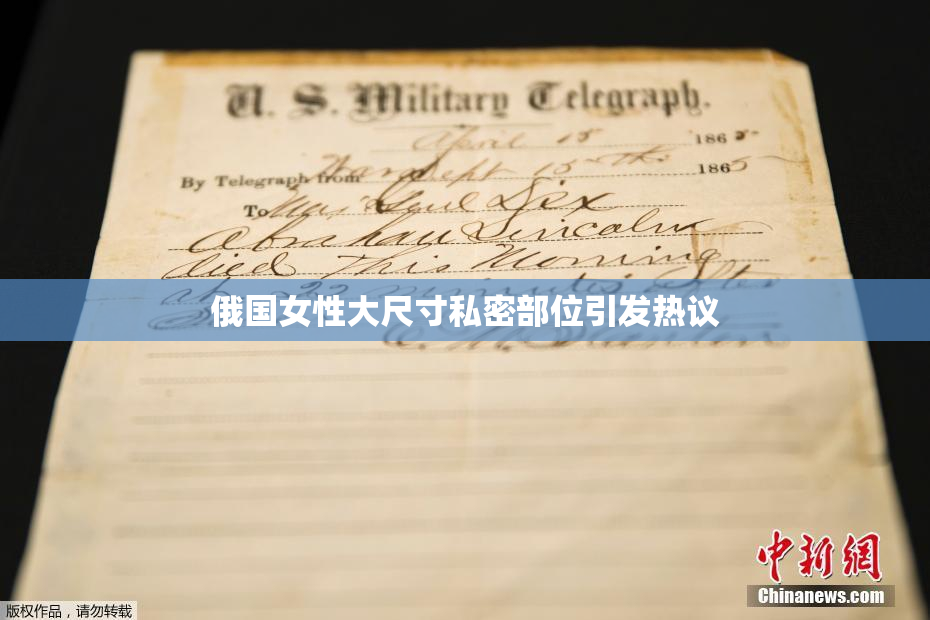 U. S. Military Telegraph.
April 15 1865
By Telegraph from War Dept 15th 1865
To Maj Genl Dix
Abraham Lincoln
died This Morning
at 22 minutes after
俄国女性大尺寸私密部位引发热议
E. M. Stanton
中新網
Chinanews.com
版权作品，请勿转载